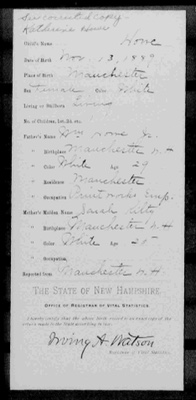 See corrected copy
Katherine Howe
Child's Name Howe
Date of Birth Nov. 13, 1889
Place of Birth Manchester
Sex Female Color White
Living or Stillborn Living
No. of Children, 1st, 2d, etc.
Father's Name Howe Jr.
" Birthplace Manchester N.H.
" Color White Age 29
" Residence Manchester
" Occupation Print Works Emp.
Mother's Maiden Name Sarah
" Birthplace Manchester N.H.
" Color White Age
" Occupation,
Reported from Manchester N.H.
THE STATE OF NEW HAMPSHIRE
OFFICE OF REGISTRAR OF VITAL STATISTICS
I hereby certify that the above birth record is an exact copy of the
return made to the State according to law.
Irving A. Watson
Registrar of Vital Statistics.